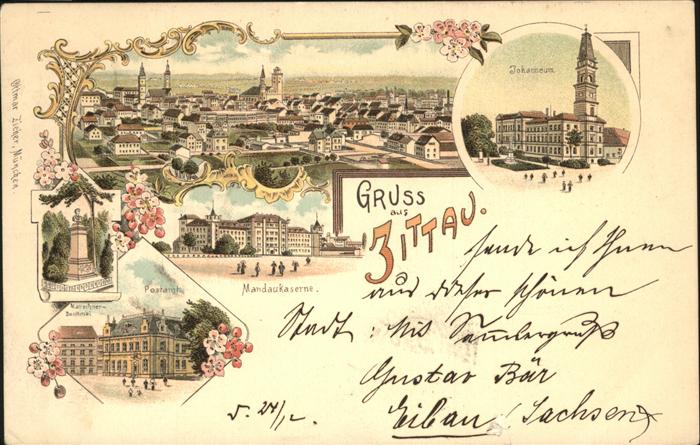 Ottmar Zieher, München.
Johanneum.
GRUSS
aus
ZITTAU.
Mandaukaserne.
Marschner-
Denkmal
Postamt.
sende ich Ihnen
aus dieser schönen
Stadt: Mit Sammlergruß
Gustav Bär
Eibau (Sachsen)
d. 24/